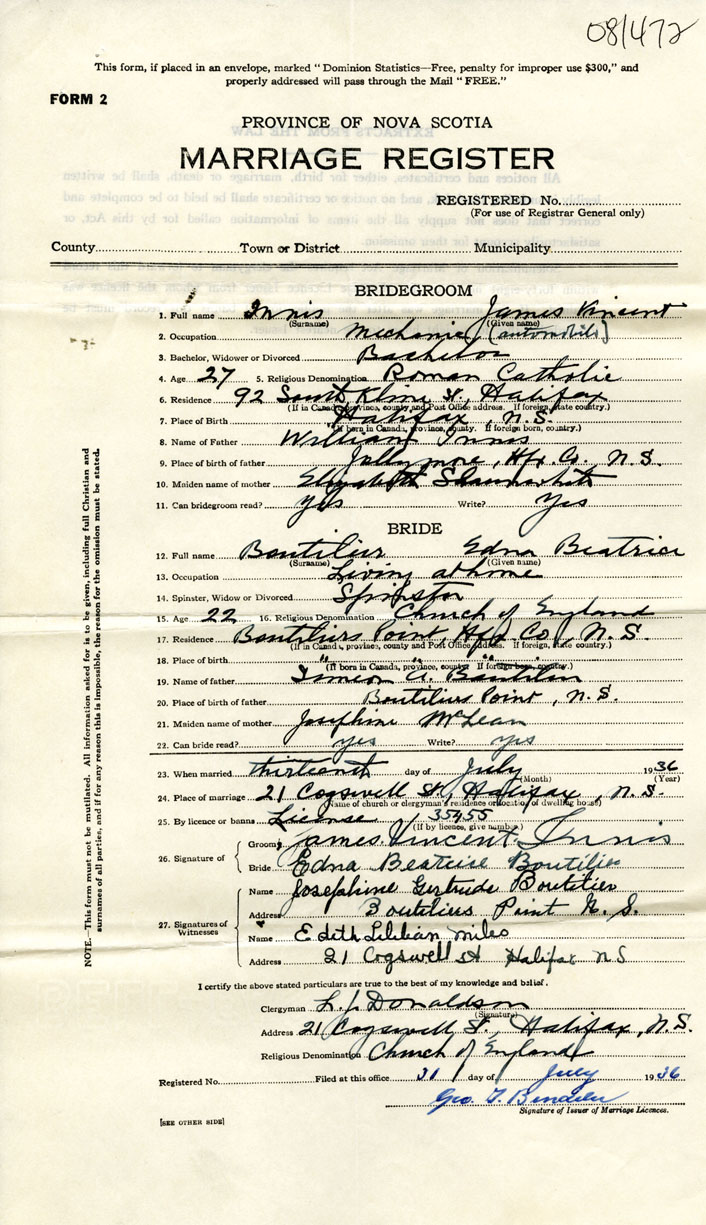 08/472
This form, if placed in an envelope, marked "Dominion Statistics—Free, penalty for improper use $300," and
properly addressed will pass through the Mail "FREE."
FORM 2
PROVINCE OF NOVA SCOTIA
MARRIAGE REGISTER
REGISTERED No.
(For use of Registrar General only)
County Town or District Municipality
BRIDEGROOM
1. Full name Innis James Vincent
(Surname) (Given name)
2. Occupation Mechanic (automobile)
3. Bachelor, Widower or Divorced Bachelor
4. Age 27 5. Religious Denomination Roman Catholic
6. Residence 92 South Kline St, Halifax
(If in Canada, province, county and Post Office address. If foreign, state country.)
7. Place of Birth Halifax, N.S.
(If born in Canada, province, county. If foreign born, country.)
8. Name of Father William Innis
9. Place of birth of father Jollymore, Hfx Co. N.S.
10. Maiden name of mother Elizabeth
11. Can bridegroom read? yes Write? Yes
BRIDE
12. Full name Boutilier Edna Beatrice
(Surname) (Given name)
13. Occupation Living at home
14. Spinster, Widow or Divorced Spinster
15. Age 22 16. Religious Denomination Church of England
17. Residence Boutiliers Point, Hfx Co, N.S.
(If in Canada, province, county and Post Office address. If foreign, state country.)
18. Place of birth " " "
(If born in Canada, province, county. If foreign born, country.)
19. Name of father Simeon A. Boutilier
20. Place of birth of father Boutiliers Point, N.S.
21. Maiden name of mother Josephine McLean
22. Can bride read? yes Write? yes
23. When married thirteenth day of July 1936
(Month) (Year)
24. Place of marriage 21 Cogswell St, Halifax, N.S.
(Name of church or clergyman's residence or location of dwelling house)
25. By licence or banns License 35455
(If by licence, give number.)
26. Signature of Groom James Vincent Innis
Bride Edna Beatrice Boutilier
27. Signatures of Witnesses
Name Josephine Gertrude Boutilier
Address Boutiliers Point N.S.
Name Edith Lillian Miles
Address 21 Cogswell St Halifax NS
I certify the above stated particulars are true to the best of my knowledge and belief.
Clergyman L. J. Donaldson
(Signature)
Address 21 Cogswell St., Halifax, N.S.
Religious Denomination Church of England
Registered No. Filed at this office 31 day of July 1936
Geo. T.
Signature of Issuer of Marriage Licences.
[SEE OTHER SIDE]
NOTE.—This form must not be mutilated. All information asked for is to be given, including full Christian and
surnames of all parties, and if for any reason this is impossible, the reason for the omission must be stated.